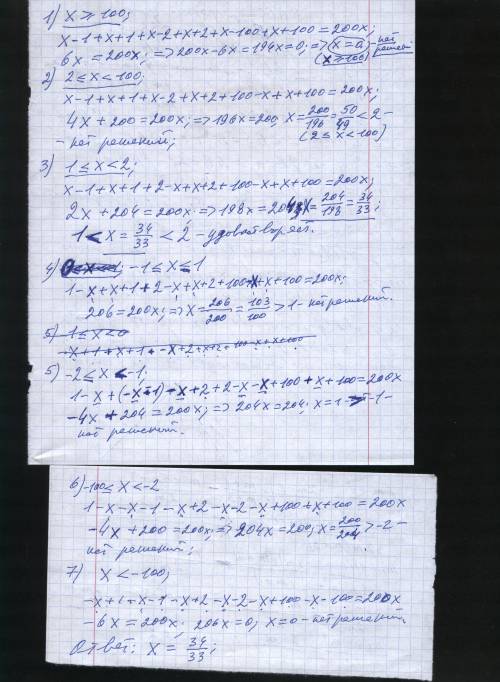 1) x ≥ 100;
x-1+x+1+x-2+x+2+x-100+x+100=200x;
6x=200x; => 200x-6x=194x=0; => x=0 - нет решений
(x ≥ 100)
2) 2 ≤ x < 100;
x-1+x+1+x-2+x+2+100-x+x+100=200x;
4x+200=200x; => 196x=200, x=200/196=50/49<2 -
- нет решений; (2 ≤ x < 100)
3) 1 ≤ x < 2;
x-1+x+1+2-x+x+2+100-x+x+100=200x;
2x+204=200x => 198x=204; x=204/198=34/33;
1 < x = 34/33 < 2 - удовлетворяет.
4) 0≤x<1; -1 ≤ x ≤ 1
1-x+x+1+2-x+x+2+100-x+x+100=200x;
206=200x; => x=206/200=103/100>1 - нет решений.
5) -1 ≤ x < 0
-x+1+x+1+-x+2+x+2+100-x+x+100
5) -2 ≤ x < -1;
1-x+(-x-1)-x+2+2-x-x+100+x+100=200x
-4x+204=200x; => 204x=204; x=1 > -1 -
нет решений.
6) -100 ≤ x < -2
1-x-x-1-x+2-x-2-x+100+x+100=200x
-4x+200=200x; => 204x=200; x=200/204>-2 -
нет решений;
7) x < -100;
-x+1-x-1-x+2-x-2-x+100-x-100=200x
-6x=200x; 206x=0; x=0 - нет решений.
Ответ: x = 34/33;